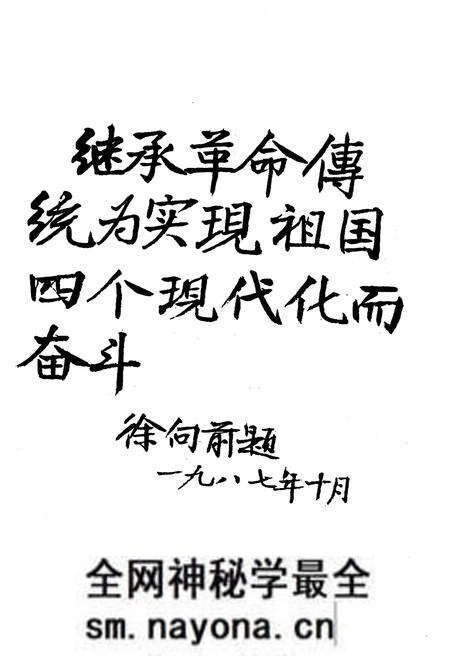 继承革命傳
统为实現祖国
四个現代化而
奋斗
徐向前题
一九八七年十月
全网神秘学最全
sm.nayona.cn